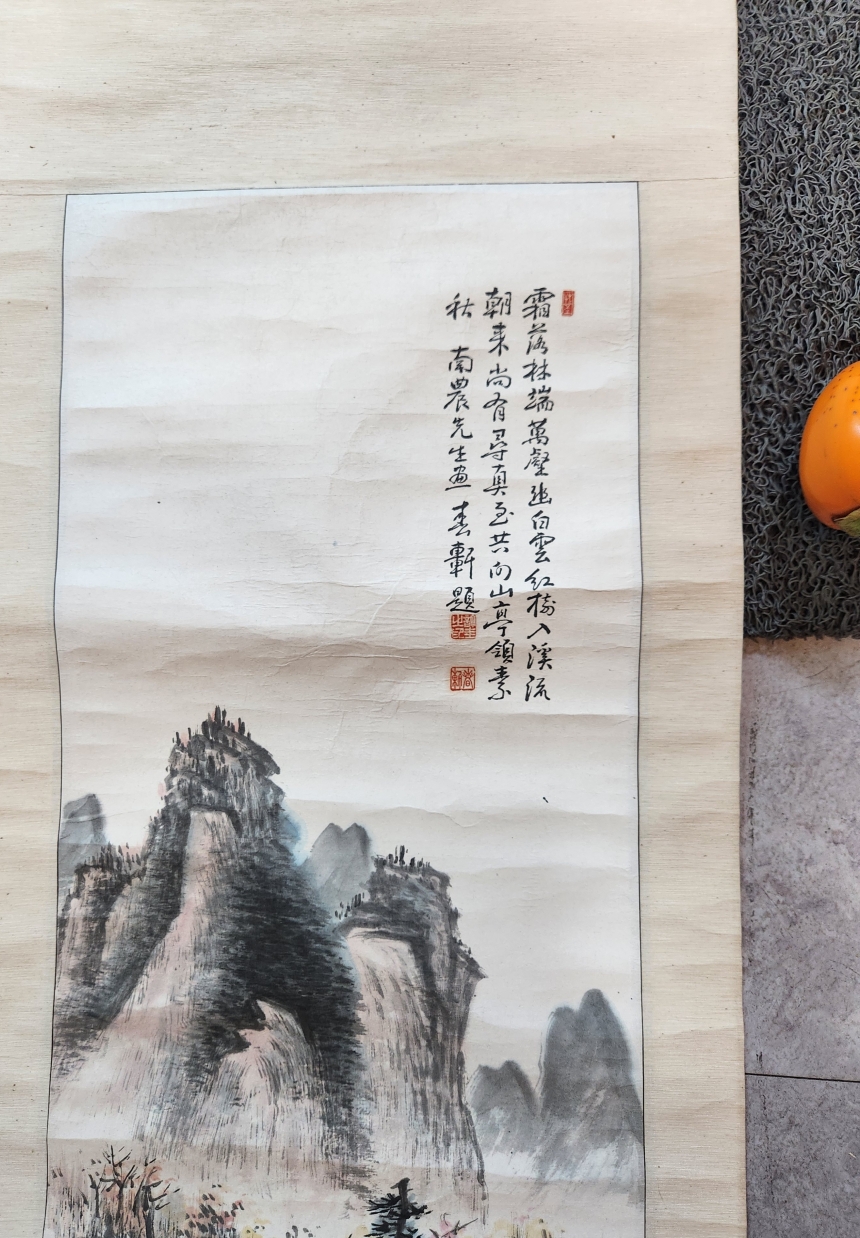 霜落林端萬壑幽白雲紅樹入溪流
朝来尚有尋真至共向山亭領素
秋 南農先生画 春軒題